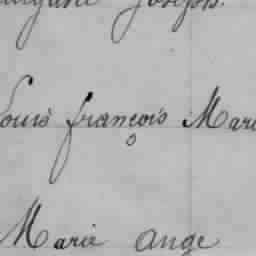 Joseph.
Louis françois Mari
Marie ange